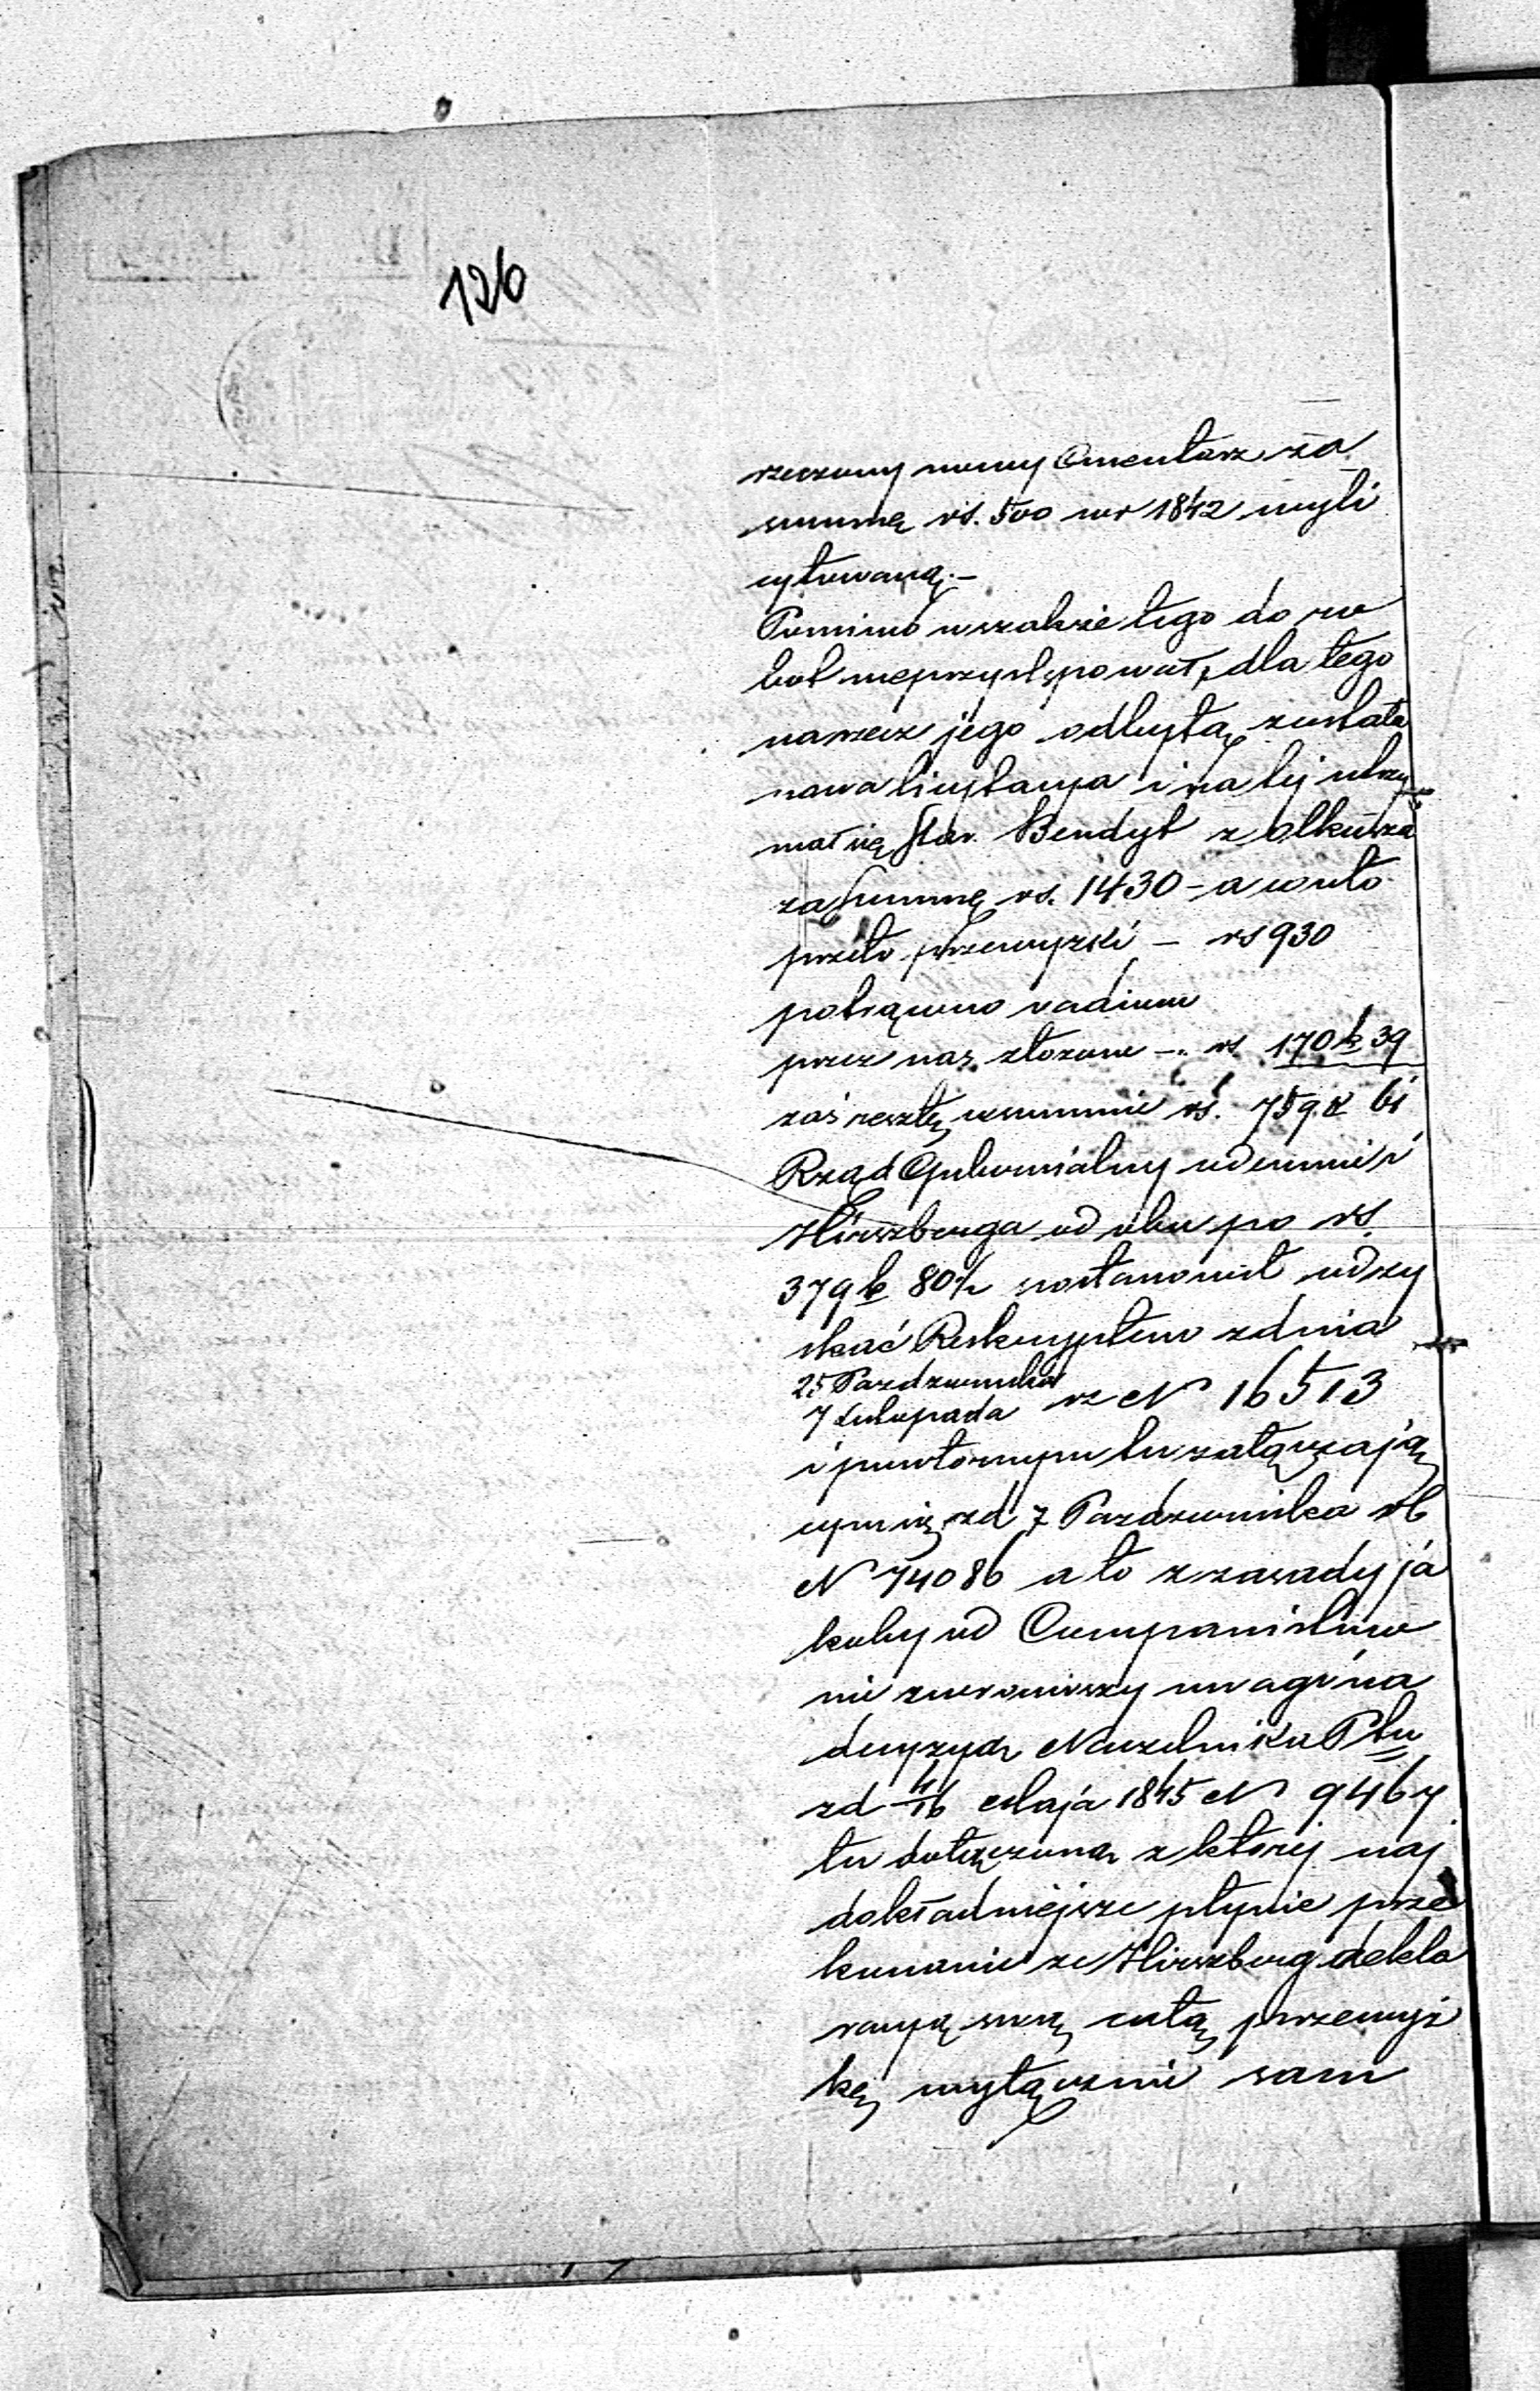 126
rzeczony nowy Cmentarz za
summę rs. 500 wr 1842 wyli
cytowaną.—
Pomimo wszakże tego do ro
bot nieprzystępował, dla tego
narzecz jego odbytą została
nowa licytacya i na tej utrzy
mał się Star. Bendyt z Olkusza
za Summę rs. 1430 - a co do
przeto przewyżki — rs 930
potrącono vadium
przez nas złozone —. rs. 170 k 39
zaś resztę wsummie rs. 759. k 61
Rząd Gubernialny odemnie i
Hirszberga od obu po rs.
379 k 80½ postanowił odzy
skać Reskryptem zdnia
25 Pazdziernika
7 Listopada rz N 16513
i powtornym tu załączają
cym się zd 7 Pazdziernika rb
N 74086 a to z zasady ja
koby od Companistow
nie zwrociwszy uwagi na
decyzyą Naczelnika Ptu
zd 4/16 Maja 1845 N 9467
tu dołączoną z ktorej naj
dokładniejsze płynie prze
konanie ze Hirszberg dekla
racyą swą całą przewyż
kę wyłącznie sam